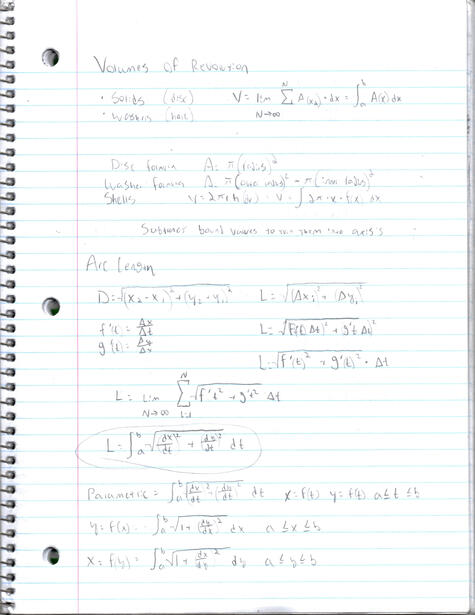 Volumes of Revolution
• Solids (disc) V = lim N→∞ Σ^N A(xₖ)·dx = ∫ₐᵇ A(x) dx
• Washers (hole)
Disc formula A = π(radius)²
Washer formula A = π(outer radius)² - π(inner radius)²
Shells V = 2πrh(dr) V = ∫ 2π·x·f(x) dx
Subtract bound values to turn them into axis's
Arc Length
D = √((x₂-x₁)² + (y₂-y₁)²) L = √((Δx)² + (Δy)²)
f'(t) = Δx/Δt
g'(t) = Δy/Δx L = √(f'(t) Δt)² + g't Δt)²
L = √(f'(t)² + g'(t)²) · Δt
L = lim N→∞ Σ^N i=1 √(f't² + g't²) Δt
L = ∫ₐᵇ √((dx/dt)² + (dx/dt)²) dt
Parametric = ∫ₐᵇ √((dx/dt)² + (dy/dt)²) dt x = f(t) y = f(t) a ≤ t ≤ b
y = f(x) ∫ₐᵇ √(1 + (dy/dx)²) dx a ≤ x ≤ b
x = f(y) = ∫ₐᵇ √(1 + (dx/dy)²) dy a ≤ y ≤ b